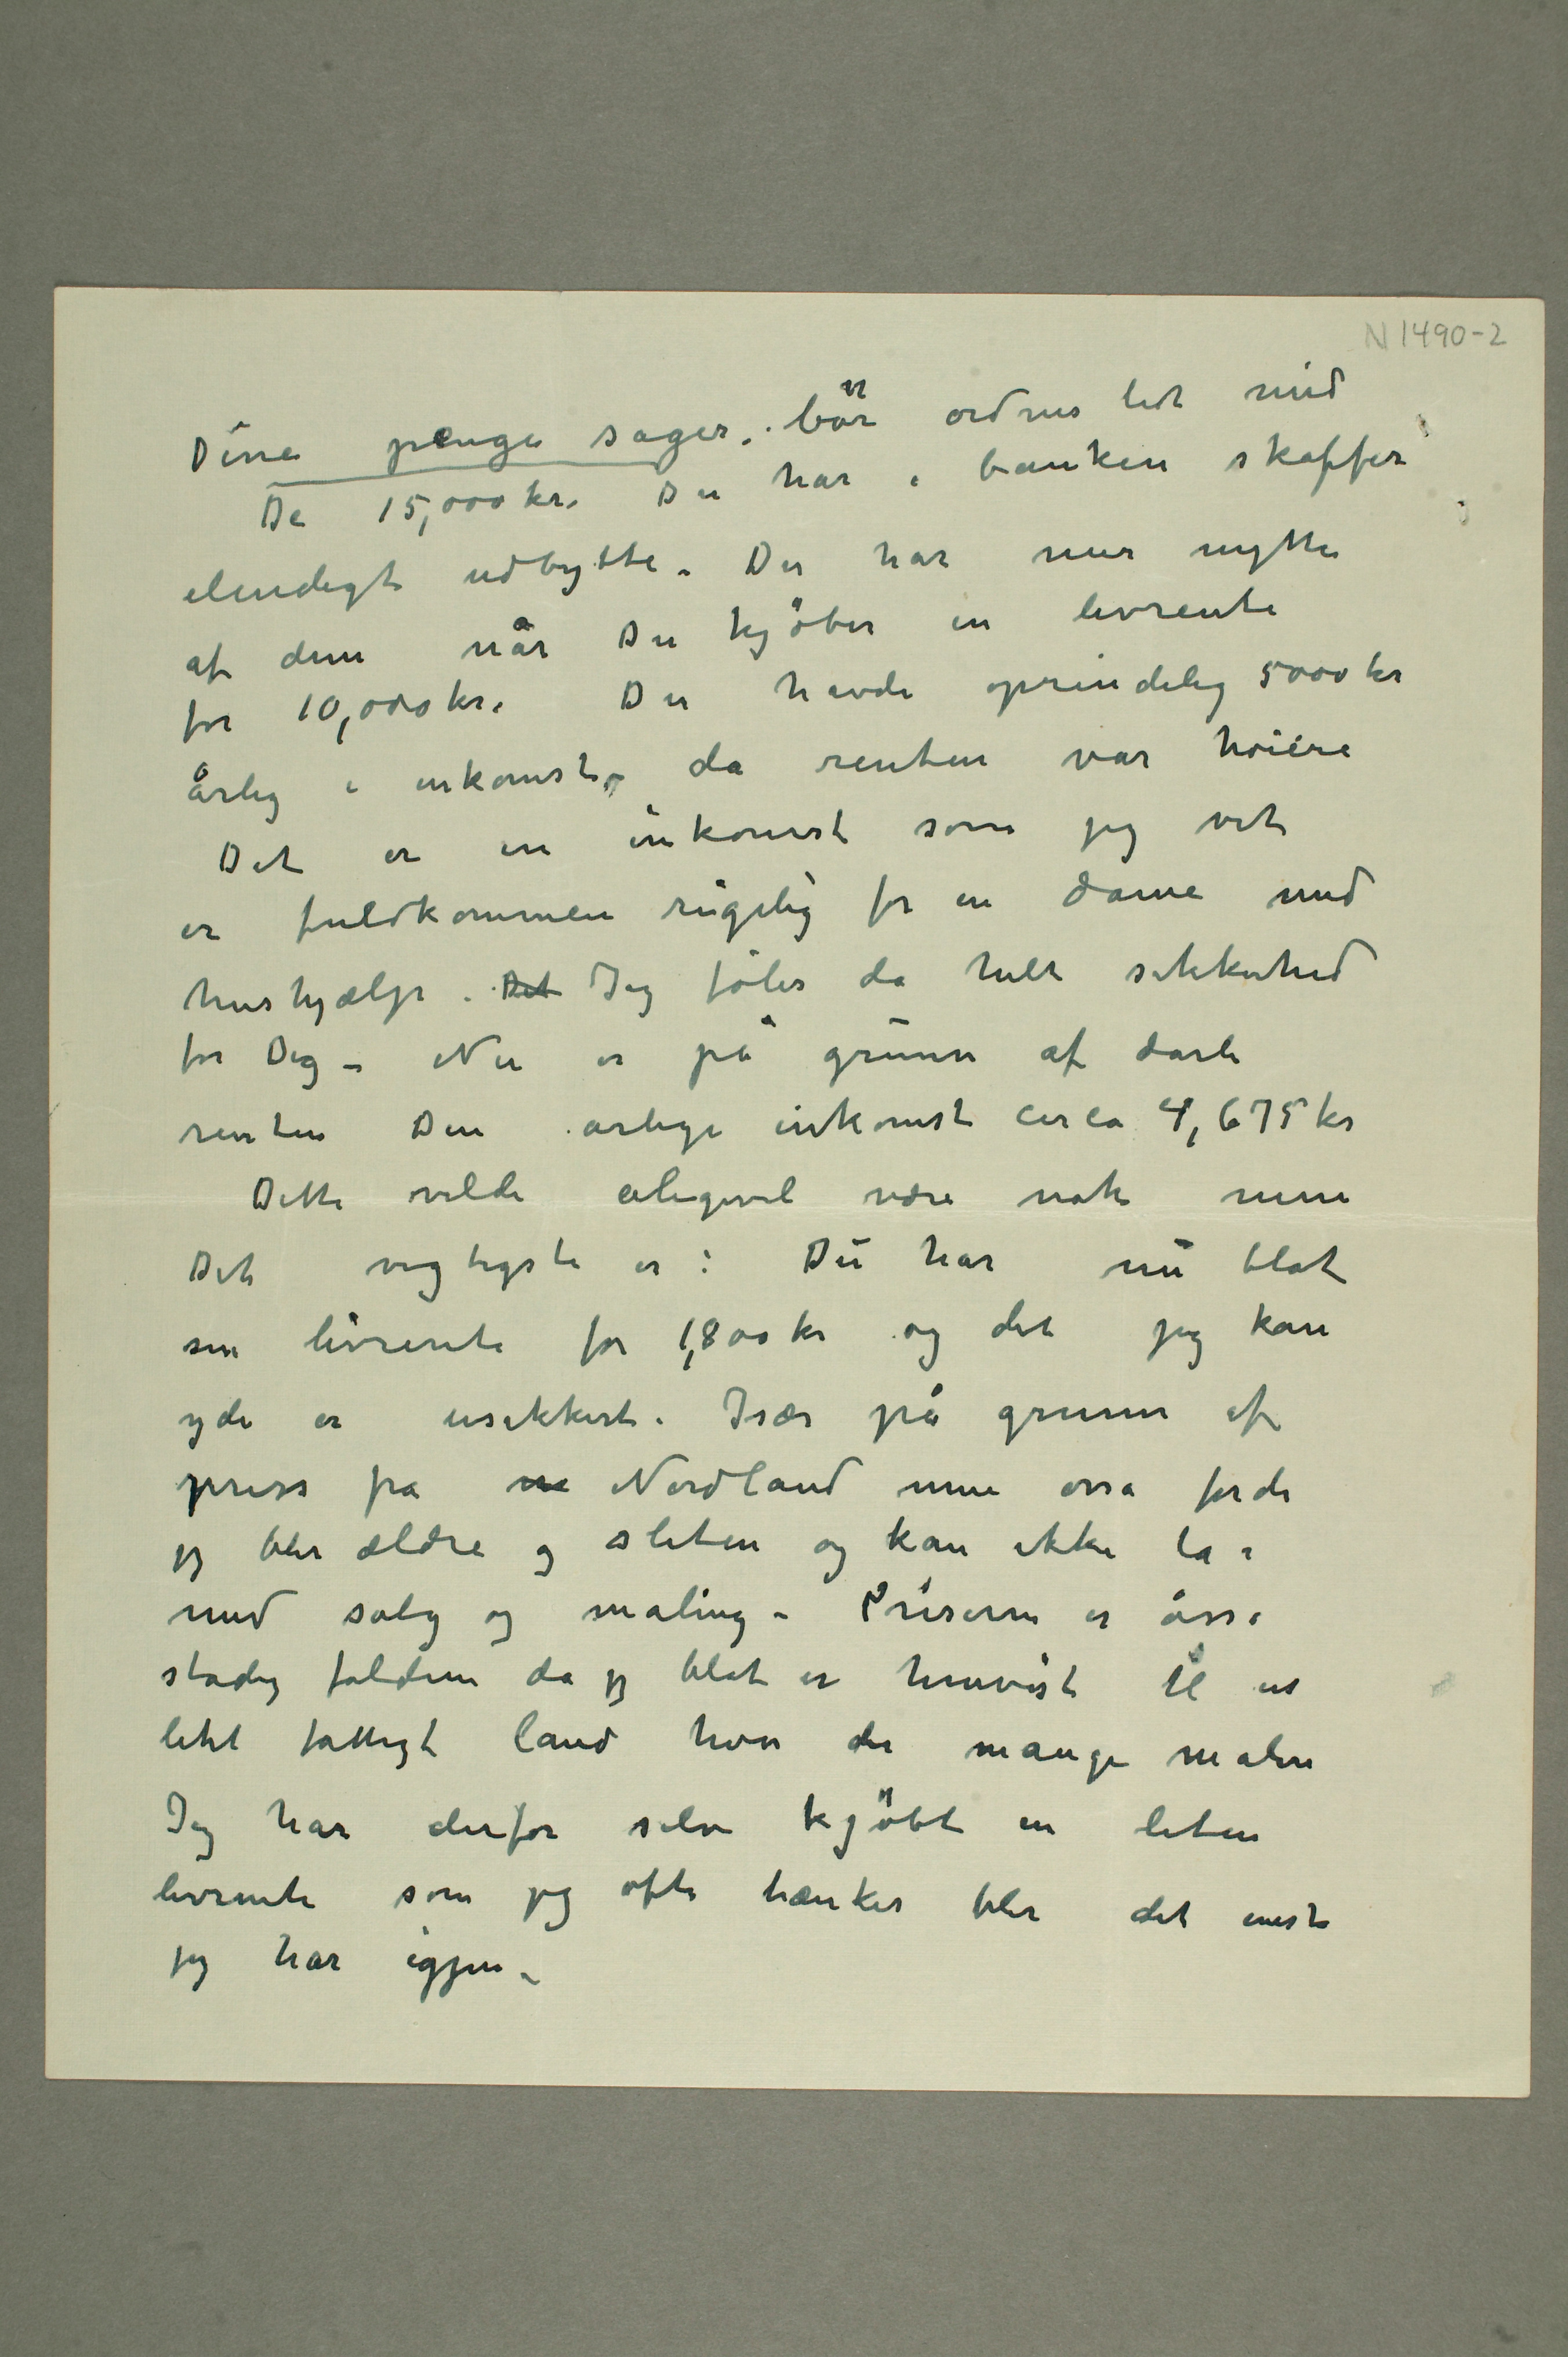 N 1490-2
Dine penge sager. bör ordnes lidt med
De 15,000 kr. Du har i banken skaffer
elendigt udbytte. Du har mer nytte
af dem når Du kjöber en livrente
for 10,000 kr. Du havde oprindelig 5000 kr
årlig i inkomst, da renten var høiere
Det er en inkomst som jeg vet
er fuldkommen rigelig for en dame med
hushjælp. Det Jeg föler da helt sikkerhed
for Dig – Nu er på grunn af darli
renten Din arlige inkomst circa 4,675 kr
Dette vilde aligevel være nok men
Det vigtigste er: Du har nu blot
sin livrente for 1,800 kr og det jeg kan
yde er usikkert. Især på grunn af
press fra Nordland men osså fordi
jeg blir ældre og sliten og kan ikke ta i
med salg og maling – Priserne er åsså
stadig faldene da jeg blot er henvist til et
litet fattigt land hvor der mange malere
Jeg har derfor selv kjöbt en liten
livrente som jeg ofte tænker blir det eneste
jeg har igjen –